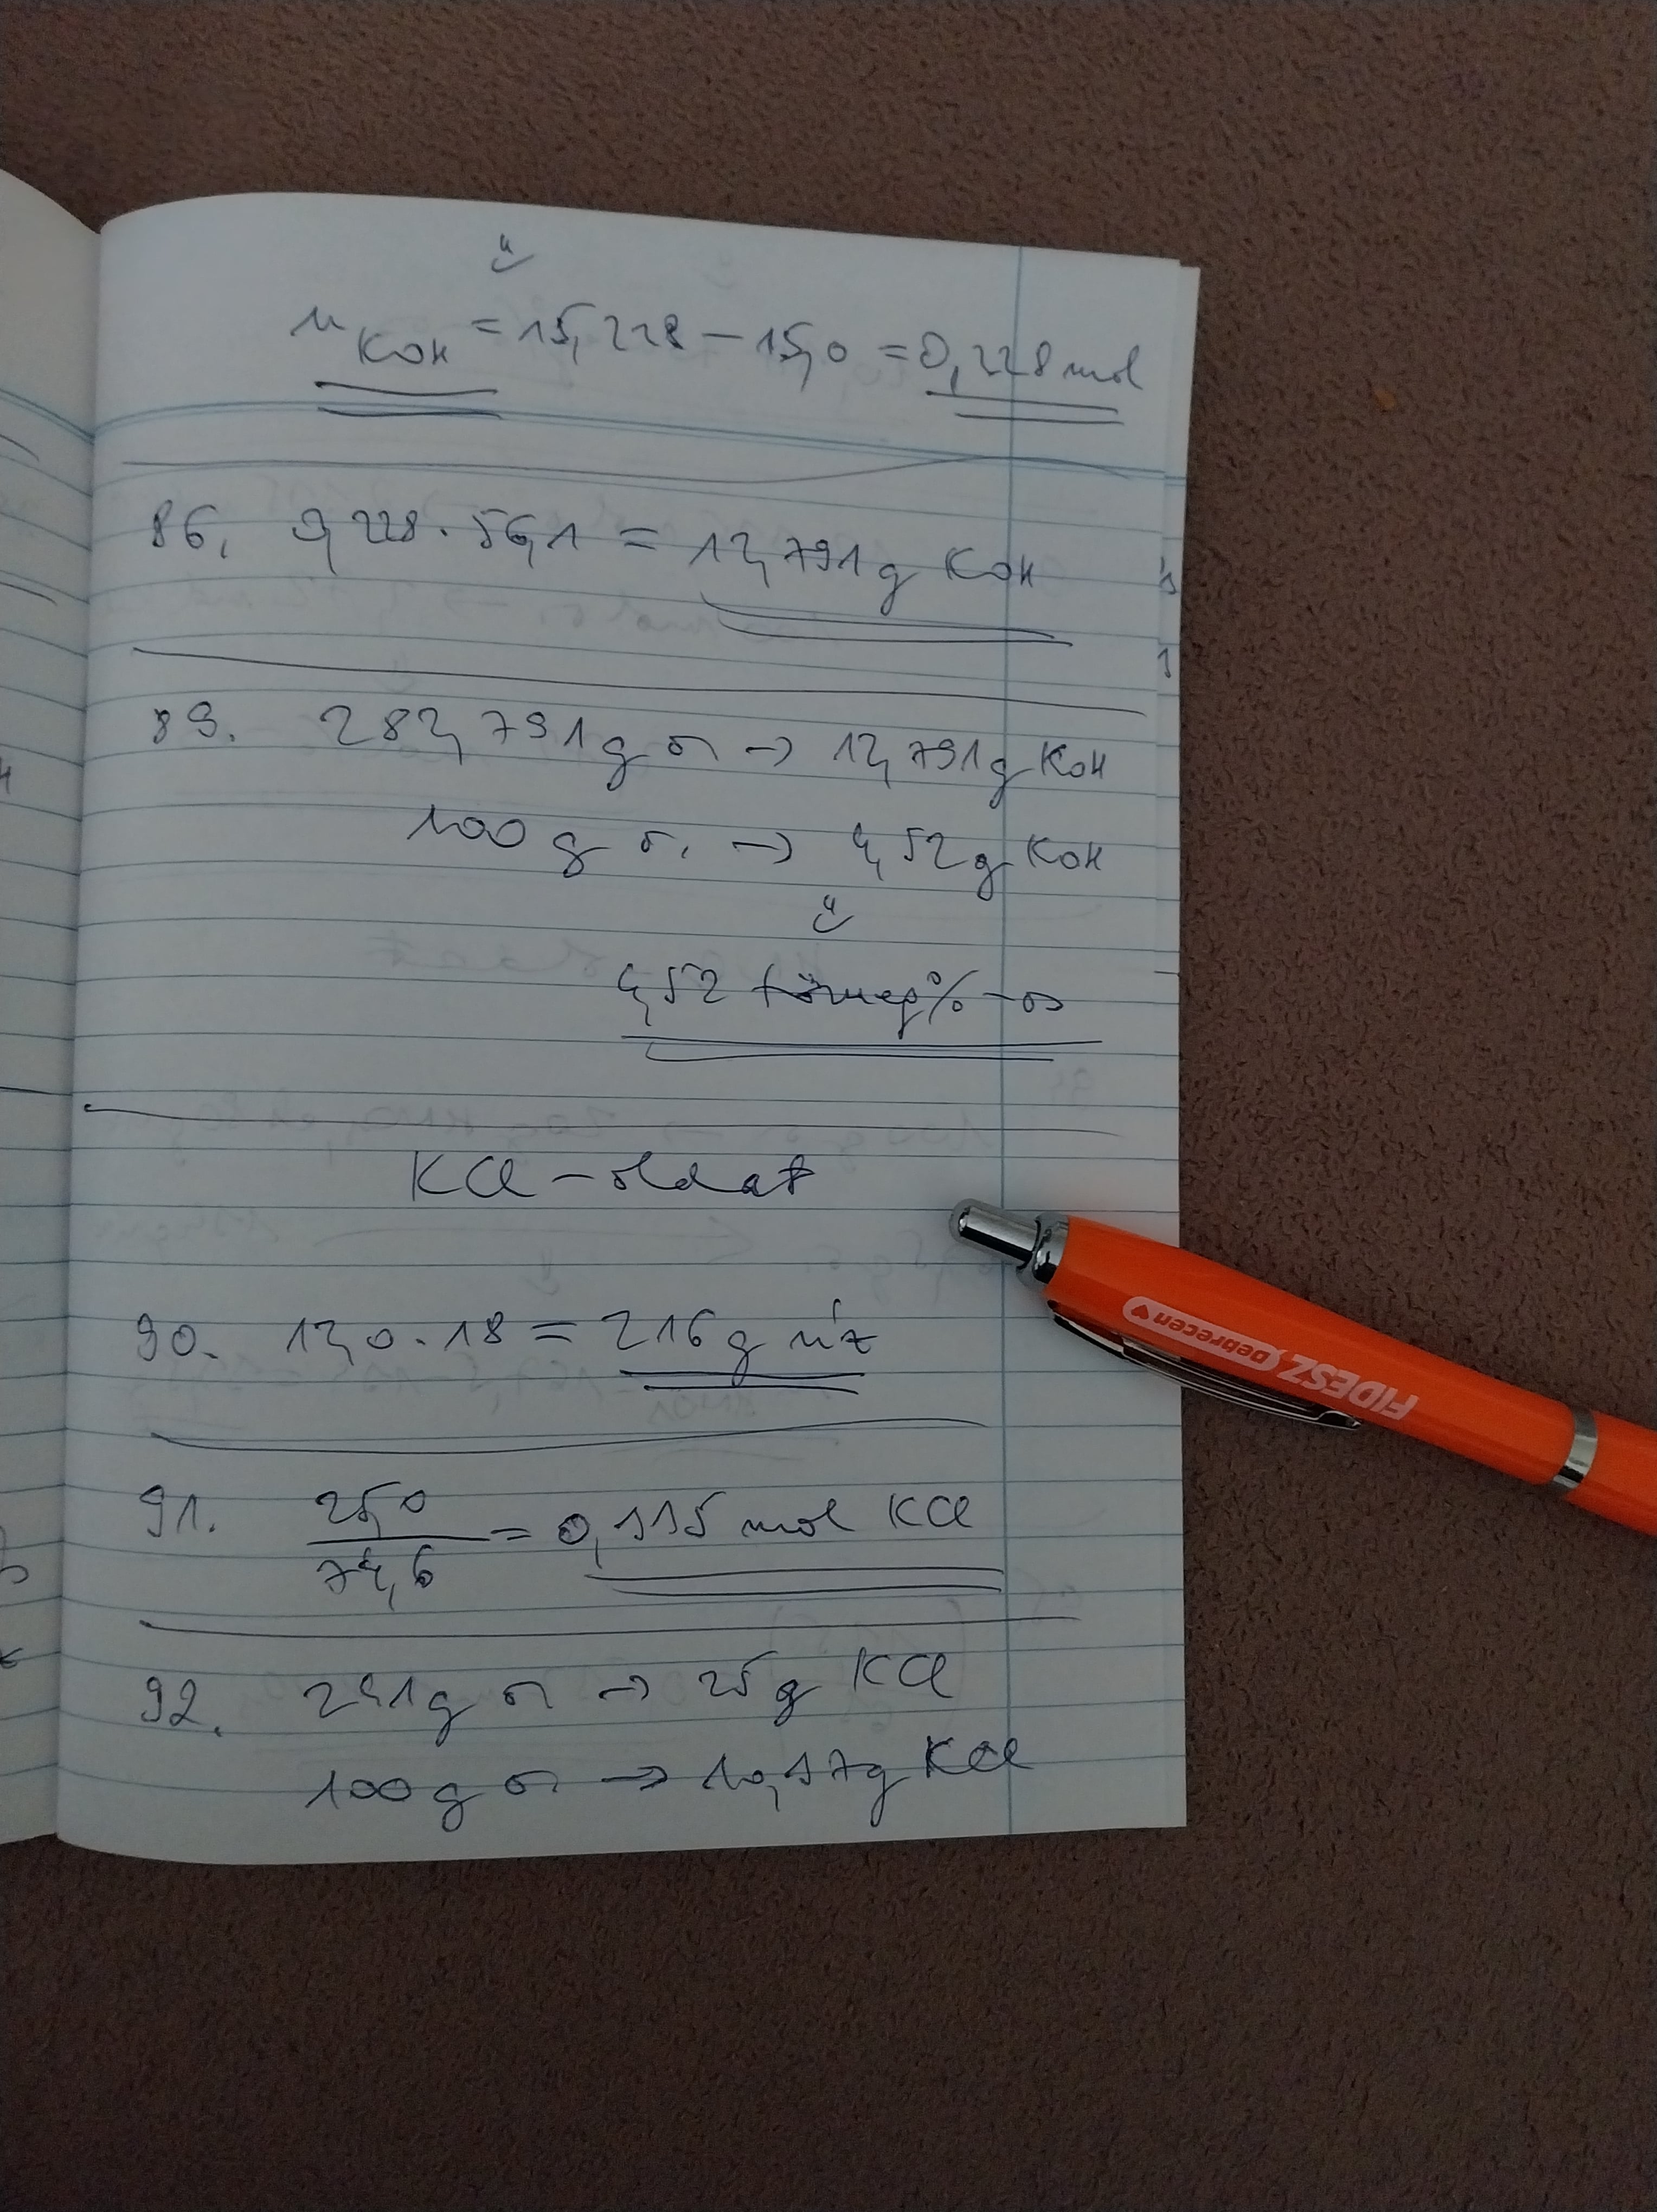 n KOH = 15,228 – 15,0 = 0,228 mol
86. 0,228 · 56,1 = 12,791 g KOH
89. 282,791 g o. → 12,791 g KOH
100 g o. → 4,52 g KOH
4,52 tömeg%-os
KCl-oldat
90. 12,0 · 18 = 216 g víz
91. 25,0 / 74,6 = 0,335 mol KCl
92. 241 g o. → 25 g KCl
100 g o. → 10,37 g KCl
FIDESZ Debrecen